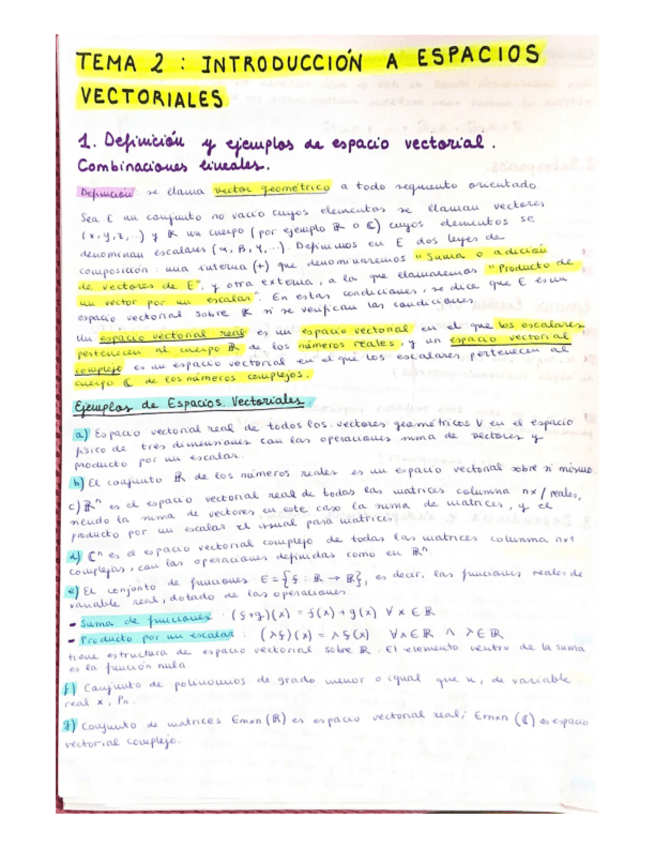 TEMA 2 : INTRODUCCIÓN A ESPACIOS
VECTORIALES
1. Definición y ejemplos de espacio vectorial.
Combinaciones lineales.
Definición se llama vector geométrico a todo segmento orientado
Sea E un conjunto no vacío cuyos elementos se llaman vectores
(x, y, z, ..) y K un cuerpo (por ejemplo R o C) cuyos elementos se
denominan escalares (α, β, γ, ..). Definimos en E dos leyes de
composición: una interna (+) que denominaremos "Suma o adición
de vectores de E", y otra externa, a la que llamaremos "Producto de
un vector por un escalar". En estas condiciones, se dice que E es un
espacio vectorial sobre K si se verifican las condiciones
Un espacio vectorial real es un espacio vectorial en el que los escalares
pertenecen al cuerpo R de los números reales, y un espacio vectorial
complejo es un espacio vectorial en el que los escalares pertenecen al
cuerpo C de los números complejos.
Ejemplos de Espacios Vectoriales
a) Espacio vectorial real de todos los vectores geométricos V en el espacio
físico de tres dimensiones con las operaciones suma de vectores y
producto por un escalar.
b) El conjunto R de los números reales es un espacio vectorial sobre sí mismo.
c) Rⁿ es el espacio vectorial real de todas las matrices columna nx1 reales,
siendo la suma de vectores en este caso la suma de matrices, y el
producto por un escalar el usual para matrices.
d) Cⁿ es el espacio vectorial complejo de todas las matrices columna nx1
complejas, con las operaciones definidas como en Rⁿ.
e) El conjunto de funciones E = {f : R → R}, es decir, las funciones reales de
variable real, dotado de las operaciones:
- Suma de funciones : (f+g)(x) = f(x) + g(x) ∀ x ∈ R
- Producto por un escalar : (λf)(x) = λ f(x) ∀x ∈ R ∧ λ ∈ R
tiene estructura de espacio vectorial sobre R. El elemento neutro de la suma
es la función nula.
f) Conjunto de polinomios de grado menor o igual que n, de variable
real x, Pn.
g) Conjunto de matrices Emxn (R) es espacio vectorial real; Emxn (C) es espacio
vectorial complejo.